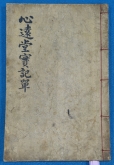 心遠堂實記單